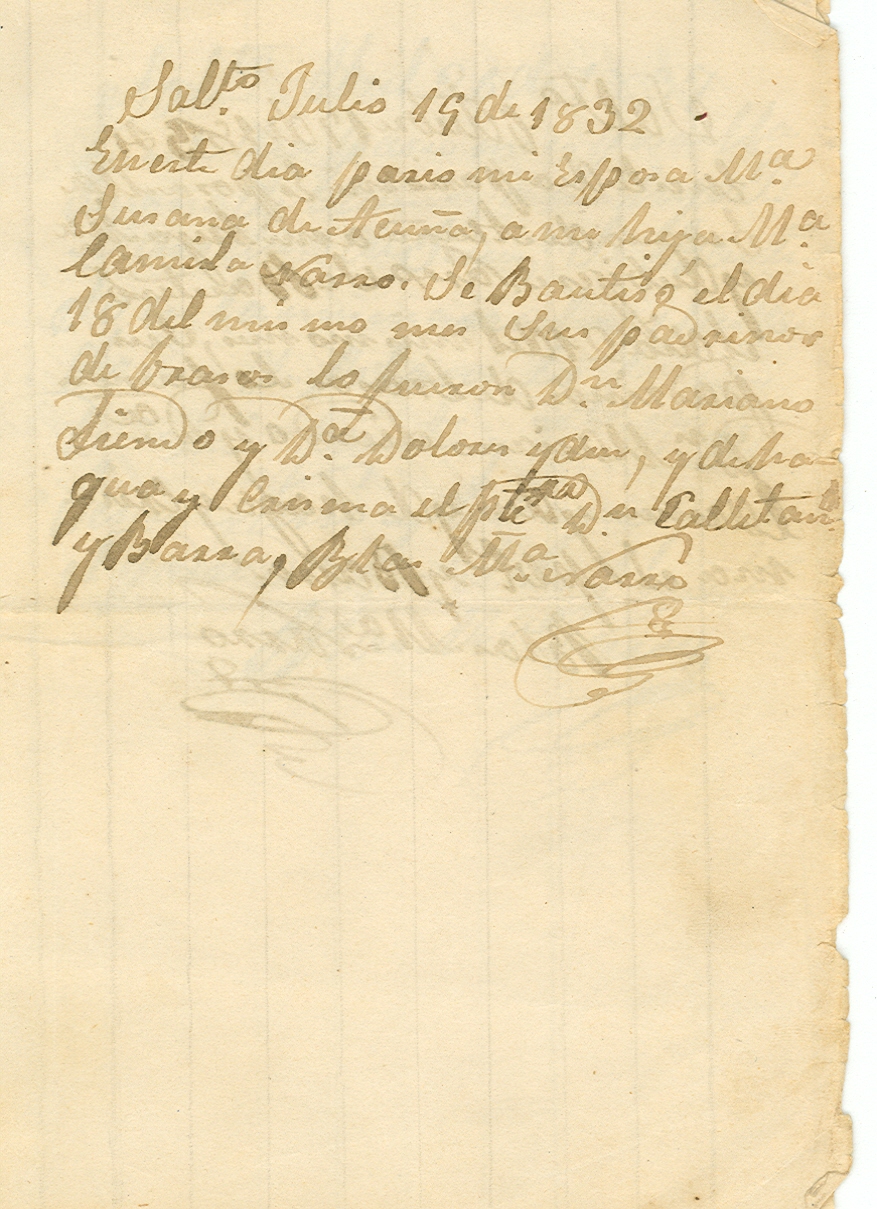 Salto. Julio 19 de 1832
En este dia pario mi Esposa Ma.
Susana de Acuña, a mi hija Ma.
Camila Narro. Se Bautisó el dia
18 del mismo mes Sus padrinos
de brasos lo fueron Dn. Mariano
y Da. Dolores ydem, y de ha=
gua y Crisma el Dn Calletano
y Barra, Blas Ma. Narro